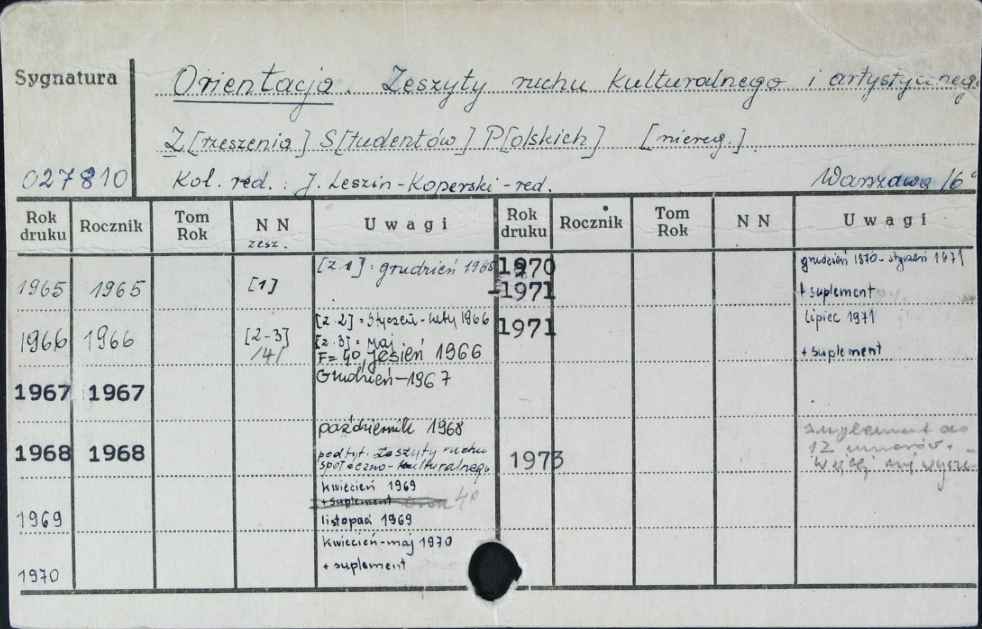 Sygnatura
Orientacja. Zeszyty ruchu kulturalnego i artystycznego
Z[rzeszenia] S[tudentów] P[olskich] [niereg.]
027810 Kol. red.: J. Leszin-Koperski-red. Warszawa
Rok druku Rocznik Tom Rok NN zesz. Uwagi Rok druku Rocznik Tom Rok NN Uwagi
1965 1965 [1] [z.1]: grudzień 1965
1970-1971 grudzień 1970-styczeń 1971
+ suplement
1966 1966 [2-3] /4/ [z.2]: styczeń-luty 1966
[z.3]: maj
F=40, jesień 1966
1971 lipiec 1971
+ suplement
1967 1967 Grudzień-1967
1968 1968 październik 1968
podtyt. Zeszyty ruchu
społeczno-kulturalnego
1973 suplement do
12 numerów.
1969 kwiecień 1969
+ suplement
listopad 1969
1970 kwiecień-maj 1970
+ suplement